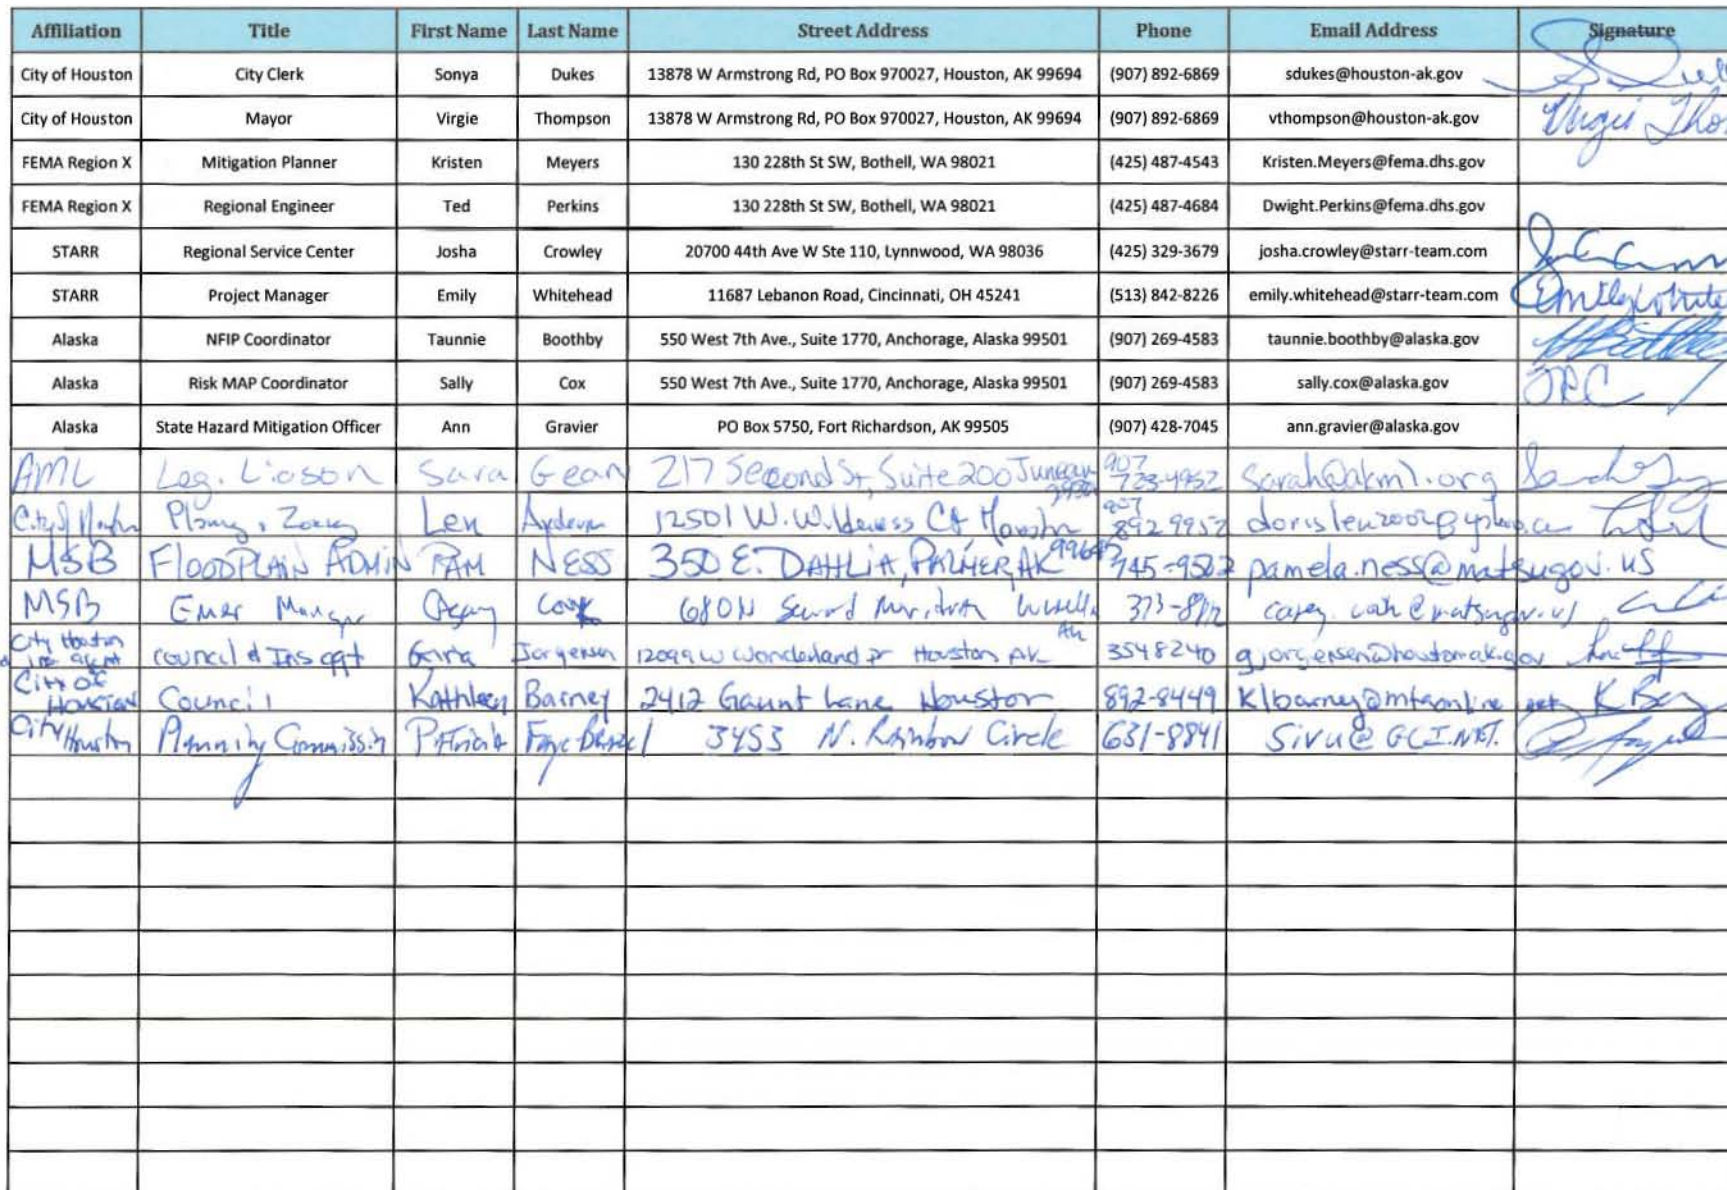 Affiliation Title First Name Last Name Street Address Phone Email Address Signature
City of Houston City Clerk Sonya Dukes 13878 W Armstrong Rd, PO Box 970027, Houston, AK 99694 (907) 892-6869 sdukes@houston-ak.gov
City of Houston Mayor Virgie Thompson 13878 W Armstrong Rd, PO Box 970027, Houston, AK 99694 (907) 892-6869 vthompson@houston-ak.gov Virgie Tho
FEMA Region X Mitigation Planner Kristen Meyers 130 228th St SW, Bothell, WA 98021 (425) 487-4543 Kristen.Meyers@fema.dhs.gov
FEMA Region X Regional Engineer Ted Perkins 130 228th St SW, Bothell, WA 98021 (425) 487-4684 Dwight.Perkins@fema.dhs.gov
STARR Regional Service Center Josha Crowley 20700 44th Ave W Ste 110, Lynnwood, WA 98036 (425) 329-3679 josha.crowley@starr-team.com
STARR Project Manager Emily Whitehead 11687 Lebanon Road, Cincinnati, OH 45241 (513) 842-8226 emily.whitehead@starr-team.com Emily White
Alaska NFIP Coordinator Taunnie Boothby 550 West 7th Ave., Suite 1770, Anchorage, Alaska 99501 (907) 269-4583 taunnie.boothby@alaska.gov
Alaska Risk MAP Coordinator Sally Cox 550 West 7th Ave., Suite 1770, Anchorage, Alaska 99501 (907) 269-4583 sally.cox@alaska.gov
Alaska State Hazard Mitigation Officer Ann Gravier PO Box 5750, Fort Richardson, AK 99505 (907) 428-7045 ann.gravier@alaska.gov
AML Leg. Liason Sara Gean 217 Second St, Suite 200 Juneau 907 723-4952 sarah@akml.org
City of Len 12501 W. Ct Houston 907 892 9952
MSB FLOODPLAIN ADMIN PAM NESS 350 E. DAHLIA, PALMER, AK 745-9583 pamela.ness@matsugov.us
MSB Emer 680 N Seward
City Houston council 12099 W Wonderland Dr Houston AK 3548240 gjorgensen@houstonak.gov
City of Houston Council Kathleen Barney 2412 Gaunt Lane Houston 892-8449 klbarney@mtaonline.net K
City Houston Planning Commission Patricia 3453 N. Rainbow Circle 631-8841 Sivu@GCI.NET.